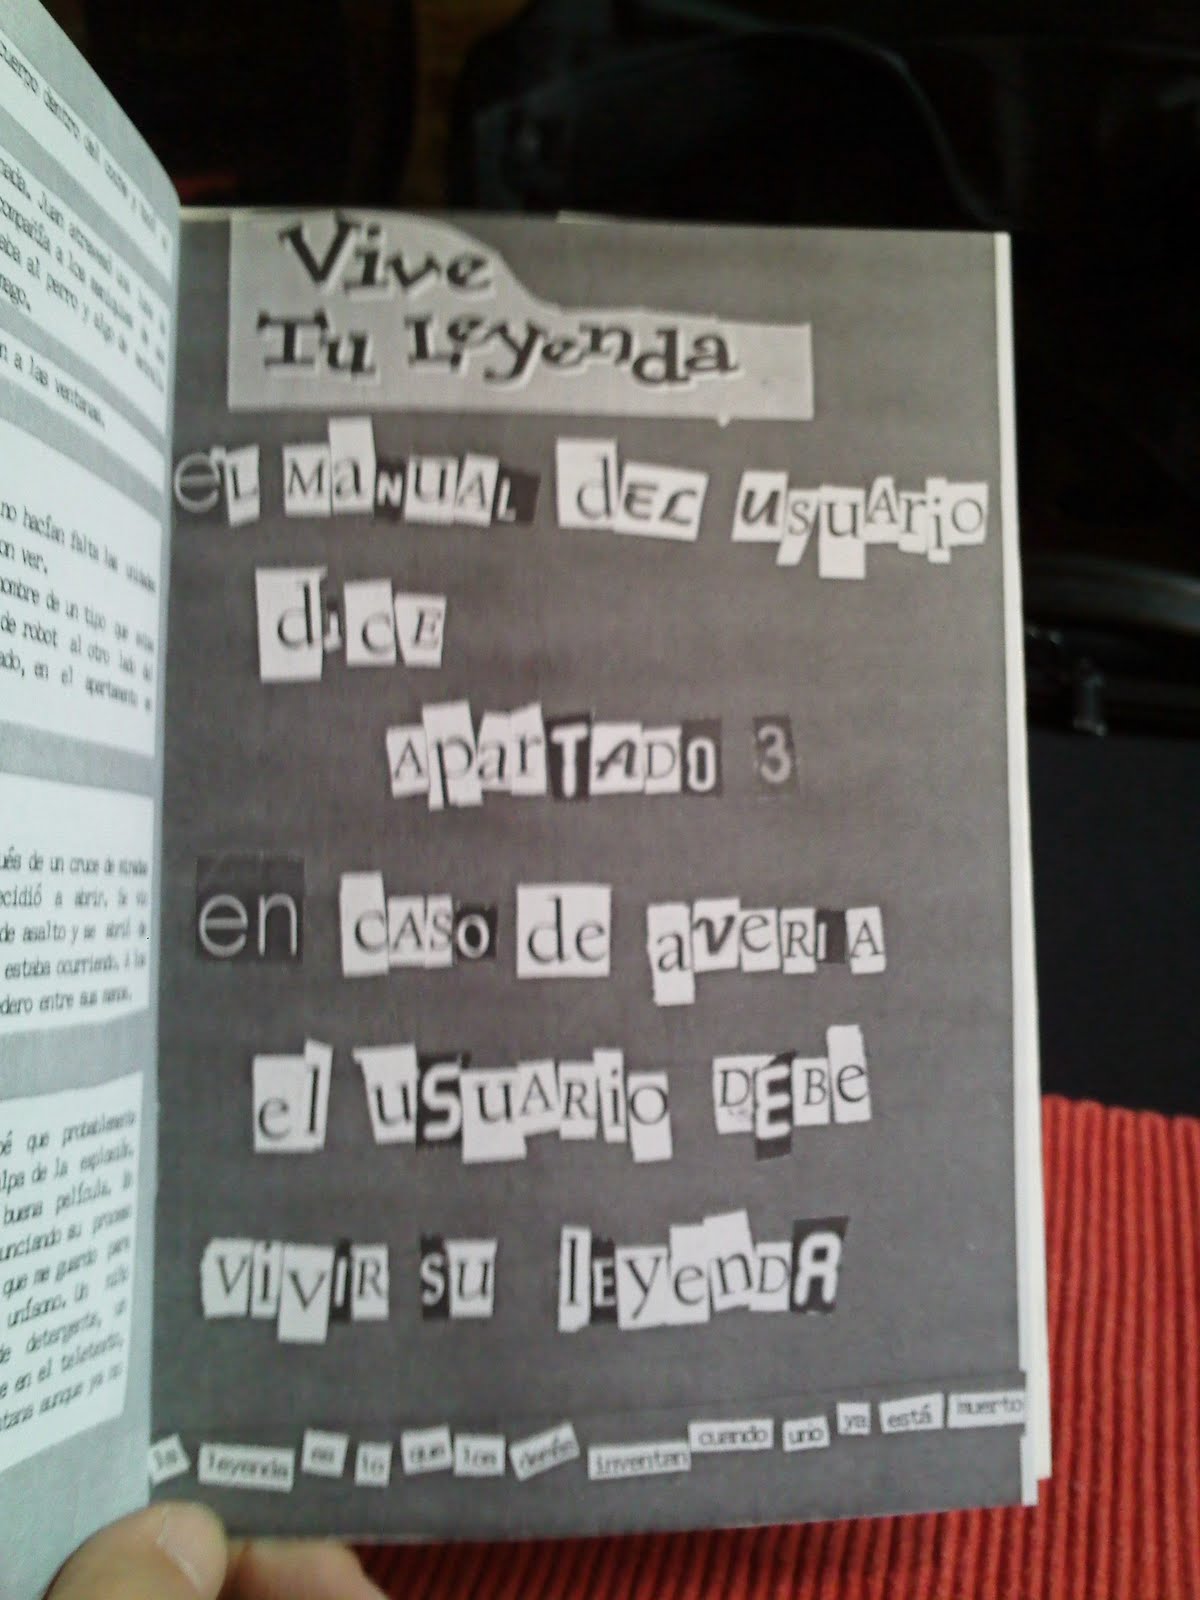 cuerpo dentro del coche y
nada. Juan atravesó una
compañía a los
aba al perro y algo de
mago.
n a las ventanas.
no hacían falta las unidades
on ver.
nombre de un tipo que
de robot al otro lado del
ado, en el apartamento
ués de un cruce de miradas
ecidió a abrir, la
de asalto y se abrió
estaba ocurriendo. A los
dero entre sus manos.
pé que probablemente
lpa de la explosión.
buena película.
unciando su proceso
que me guardo para
unísono. Un
de detergente, un
e en el teletexto,
ntana aunque ya no
Vive
Tu Leyenda
EL MaNUAL dEL UsuArio
dicE
ApArTADO 3
en CASO de aveRIA
el uSuARio DÉBe
VíVIR SU lEyenDA
la leyenda es lo que los demás inventan cuando uno ya está muerto